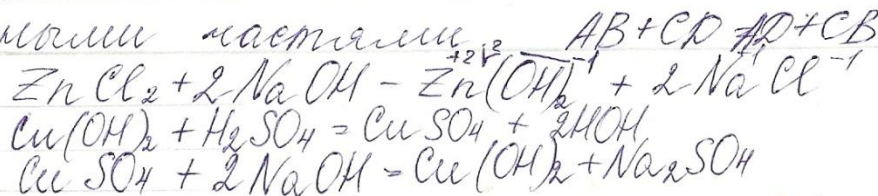 ными частями AB + CD = AD + CB
ZnCl₂ + 2NaOH – Zn⁺²(OH)₂⁻¹ + 2NaCl⁻¹
Cu(OH)₂ + H₂SO₄ = CuSO₄ + 2HOH
CuSO₄ + 2NaOH = Cu(OH)₂ + Na₂SO₄